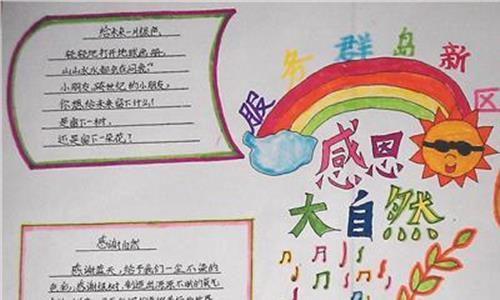 给未来一片绿色
轻轻地打开地球画册,
山山水水都会在问我:"
小朋友,跨世纪的小朋友,
你想给未来留下什么!
是留下一树,
还是留下一朵花?
服务群岛新区
感恩
大自然
感谢自然
感谢蓝天,给予我们一尘不染的
色彩,感谢绿树,制造出源源不断的氧气